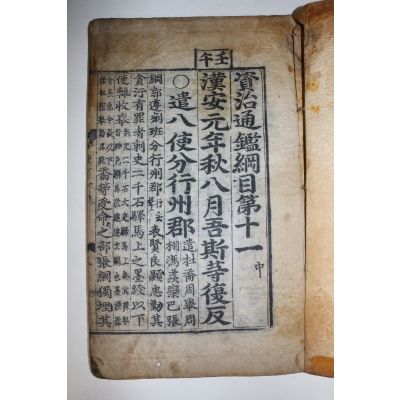 資治通鑑綱目第十一 中
壬午
漢安元年秋八月吾斯等復反
○遣八使分行州郡
遣杜喬周舉周
栩馮羨欒巴張
綱郭遵劉班分行州郡
表賢良顯忠勤其
貪汙有罪者刺史二千石驛馬上之墨綬以下
便輒收舉
喬等受命之部張綱獨埋其